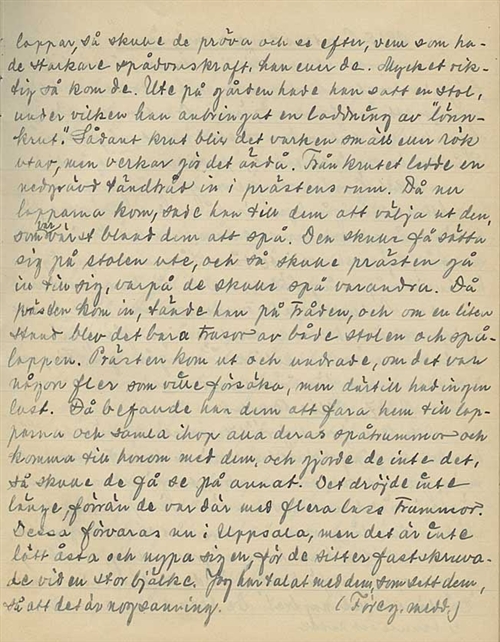 lappar, så skulle de pröva och se efter, vem som ha-
de starkare spådomskraft, han eller de. Mycket rik-
tig så kom de. Ute på gården hade han satt en stol,
under vilken han anbringat en laddning av "lönn-
krut." Sådant krut blir det varken smäll eller rök
utav, men verkar gör det ändå. Från krutet ledde en
nedgrävd tändtråd in i prästens rum. Då nu
lapparna kom, sade han till dem att välja ut den,
som var värst bland dem att spå. Den skulle få sätta
sig på stolen ute, och så skulle prästen gå
in till sig, varpå de skulle spå varandra. Då
prästen kom in, tände han på tråden, och om en liten
stund blev det bara trasor av både stolen och spå-
lappen. Prästen kom ut och undrade, om det var
någon fler som ville försöka, men därtill had ingen
lust. Då befallde han dem att fara hem till lap-
parna och samla ihop alla deras spåtrummor och
komma till honom med dem, och gjorde de inte det,
så skulle de få se på annat. Det dröjde inte
länge, förrän de var där med flera lass trummor.
Dessa förvaras nu i Uppsala, men det är inte
lätt åsta och nypa sig en, för de sitter fastskruva-
de vid en stor bjälke. Jag har talat med dem, som sett dem,
så att det är nog sanning. (Föreg. medd.)